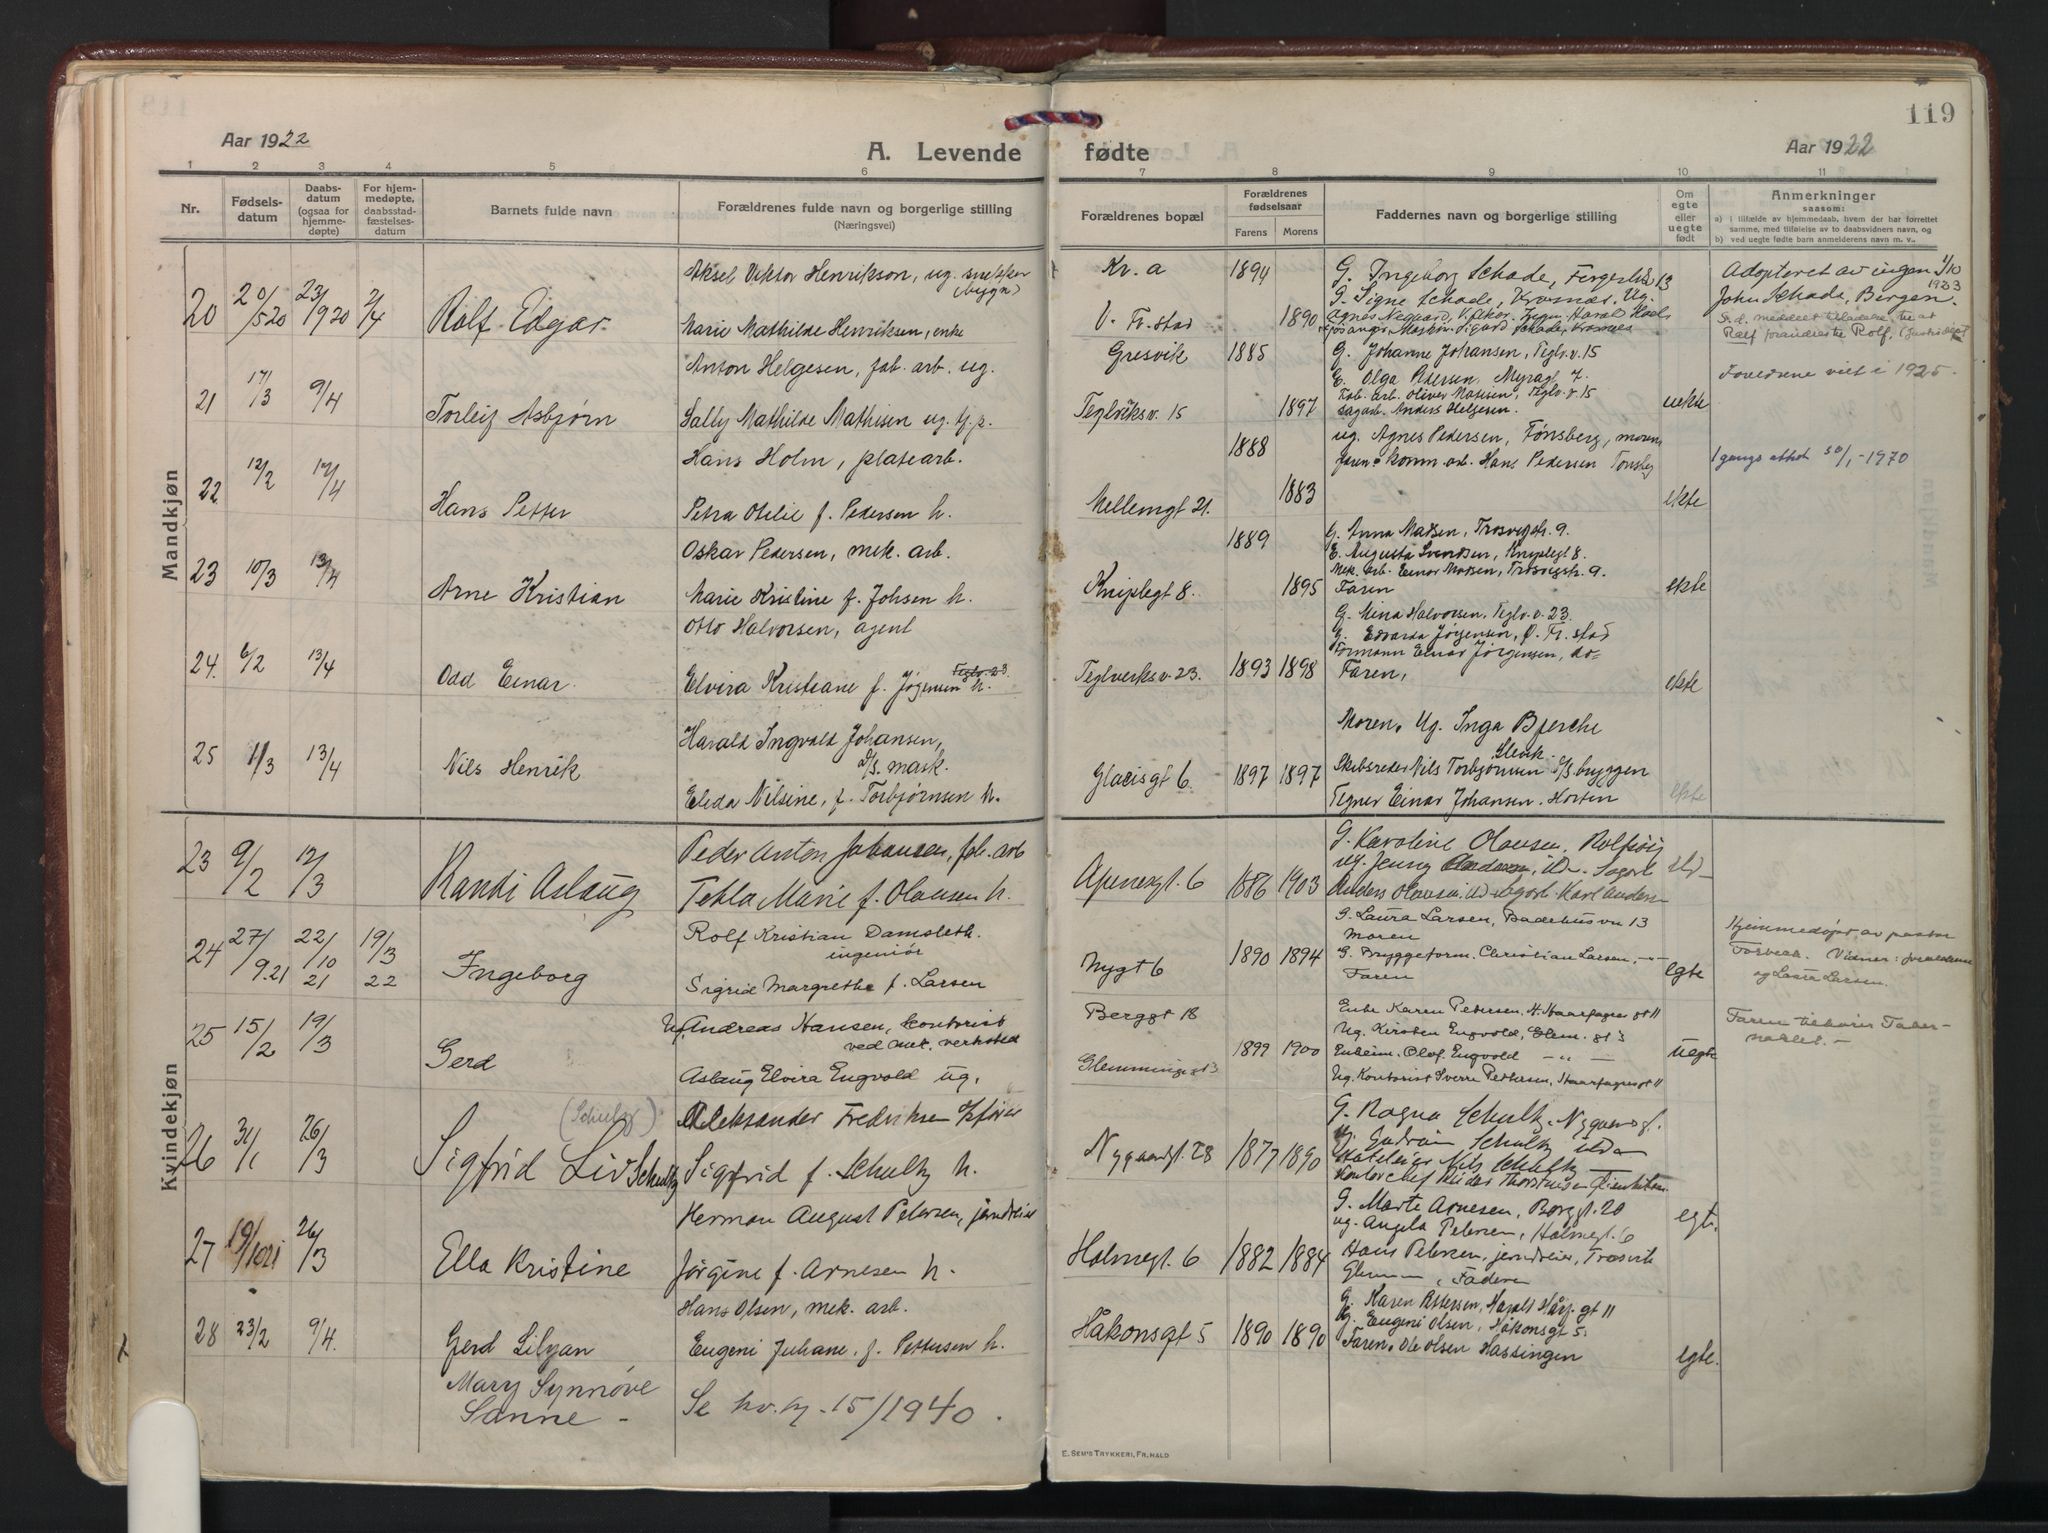 119
Aar 1922
A. Levende fødte
Aar 1922
1 2 3 4 5 6 7 8 9 10 11
Nr.
Fødsels-
datum
Daabs-
datum
(ogsaa for
hjemme-
døpte)
For hjem-
medøpte,
daabsstad-
fæstelses-
datum
Barnets fulde navn
Forældrenes fulde navn og borgerlige stilling
(Næringsvei)
Forældrenes bopæl
Forældrenes
fødselsaar
Farens Morens
Faddernes navn og borgerlige stilling
Om
egte
eller
uegte
født
Anmerkninger
saasom:
a) i tilfælde av hjemmedaab, hvem der har forrettet
samme, med tilføielse av to daabsvidners navn, og
b) ved uegte fødte barn anmelderens navn m. v.
Mandkjøn
20 20/5 20 23/9 20 2/4 Rolf Edgar
Aksel Viktor Henrikson, ug. snekker
(bygn)
Marie Mathilde Henriksen, enke
Kr. a 1894
V. Fr.stad 1890
G. Ingeborg Schade, 13
G. Signe Schade, Krosnæs, Ug.
Sigurd Schade, Krosnes
Adopteret av ingen 1/10
1923
John Schade, Bergen.
Rolf
21 17/3 9/4 Torleif Asbjørn
Anton Helgesen, fab. arb. ug.
Sally Mathilde Mathisen ug. tj. p.
Gresvik 1885
Teglviksv. 15 1897
G. Johanne Johansen, Teglv.v. 15
E. Olga Pedersen, Myragt 7.
Fab. arb. Oliver Madsen, Teglv. v 15
Sagarb. Anders Helgesen.
uekte
Foreldrene viet i 1925.
22 12/2 12/4 Hans Petter
Hans Holm, platearb.
Petra Otelie f. Pedersen h.
Mellemgt 21. 1888 1883
ug. Agnes Pedersen, Tønsberg, moren
faren komm. arb. Hans Pedersen Tønsbg
ekte
1 gangs attest 30/1-1970
23 10/3 13/4 Arne Kristian
Oskar Pedersen, mek. arb.
Marie Kristine f. Johsen h.
Kniplegt 8. 1889 1895
G. Anna Madsen, Trosvigstr. 9.
E. Augusta Svendsen, Kniplegt 8.
Mek. arb. Einar Madsen, Trosvigstr. 9.
Faren
ekte
24. 6/2 13/4 Odd Einar.
Otto Halvorsen, agent
Teglv. 23.
Elvira Kristiane f. Jørgensen h.
Teglverksv. 23. 1893 1898
G. Mina Halvorsen, Teglv. v. 23.
G. Edvarda Jørgensen, Ø. Fr.stad
Formann Einar Jørgensen, do-
Faren,
ekte
25 11/3 13/4 Nils Henrik
Harald Ingvald Johansen,
D/S. mask.
Elida Nilsine, f. Torbjørnsen h.
Glacisgt 6. 1897 1897
Moren. Ug. Inga Bjerche
Skibsreder Nils Torbjørnsen D/S bryggen
Tegner Einar Johansen. Horten
ekte
Kvindekjøn
23 9/2 12/3 Randi Aslaug
Peder Anton Johansen, fab. arb
Tekla Marie f. Olausen h.
Apenesgt. 6 1886 1903
G. Karoline Olausen, Rolfsøy
Ug. Jenny
Anders Olausen Karl Anders
24 27/9.21 22/10 21 19/3 22 Ingeborg
Rolf Kristian Damsleth.
ingeniør
Sigrid Margrethe f. Larsen
Nygt 6 1890 1894
G. Laura Larsen, Badehusvn 13
Moren
G. Byggeform. Christian Larsen, -"-
Faren
egte
Hjemmedøpt av pastor
Vidner: foreldrene
og Laura Larsen.
25 15/2 19/3 Gerd
Ug. Andreas Hansen, kontorist
ved mek. verksted
Aslaug Elvira Engvold ug.
Berggt 18
Glemmingegt 3 1899 1900
Enke Karen Pettersen, H. Haarfagres gt 11
Ug. Kirsten Engvold, Glem. gt 3
Olaf Engvold -"-
Ug. Kontorist Sverre Pettersen, Haarfagresgt 11
uegte
Faren tilhører Taber-
naklet. -
26 31/1 26/3 Sigfrid Liv Schultz
(Schultz)
Aleksander Fredriksen
Sigfrid f. Schultz h.
Nygaardsgt. 28 1877 1890
G. Ragna Schultz, Nygaardsgt.
Ug. Gudrun Schultz
Nils Schultz
27 19/10 21 26/3 Ella Kristine
Herman August Petersen, jerndreier
Jørgine f. Arnesen h.
Holmegt. 6 1882 1884
G. Marte Arnesen, Borggt. 20
ug. Angela Petersen, Holmegt. 6
Hans Petersen, jerndreier, Trosvik
Faderen
egt.
28 23/2 9/4. Gerd Lilyan
Hans Olsen, mek. arb.
Eugeni Juhane, f. Pettersen h.
Håkonsgt 5 1890 1890
G. Karen Pettersen, Harald Hårf. gt 11
G. Eugeni Olsen, Håkonsgt 5.
Faren. Ole Olsen Hassingen
egte.
Mary Synnøve
Sanne -
Se 15/1940.
E. SEM'S TRYKKERI, FR.HALD